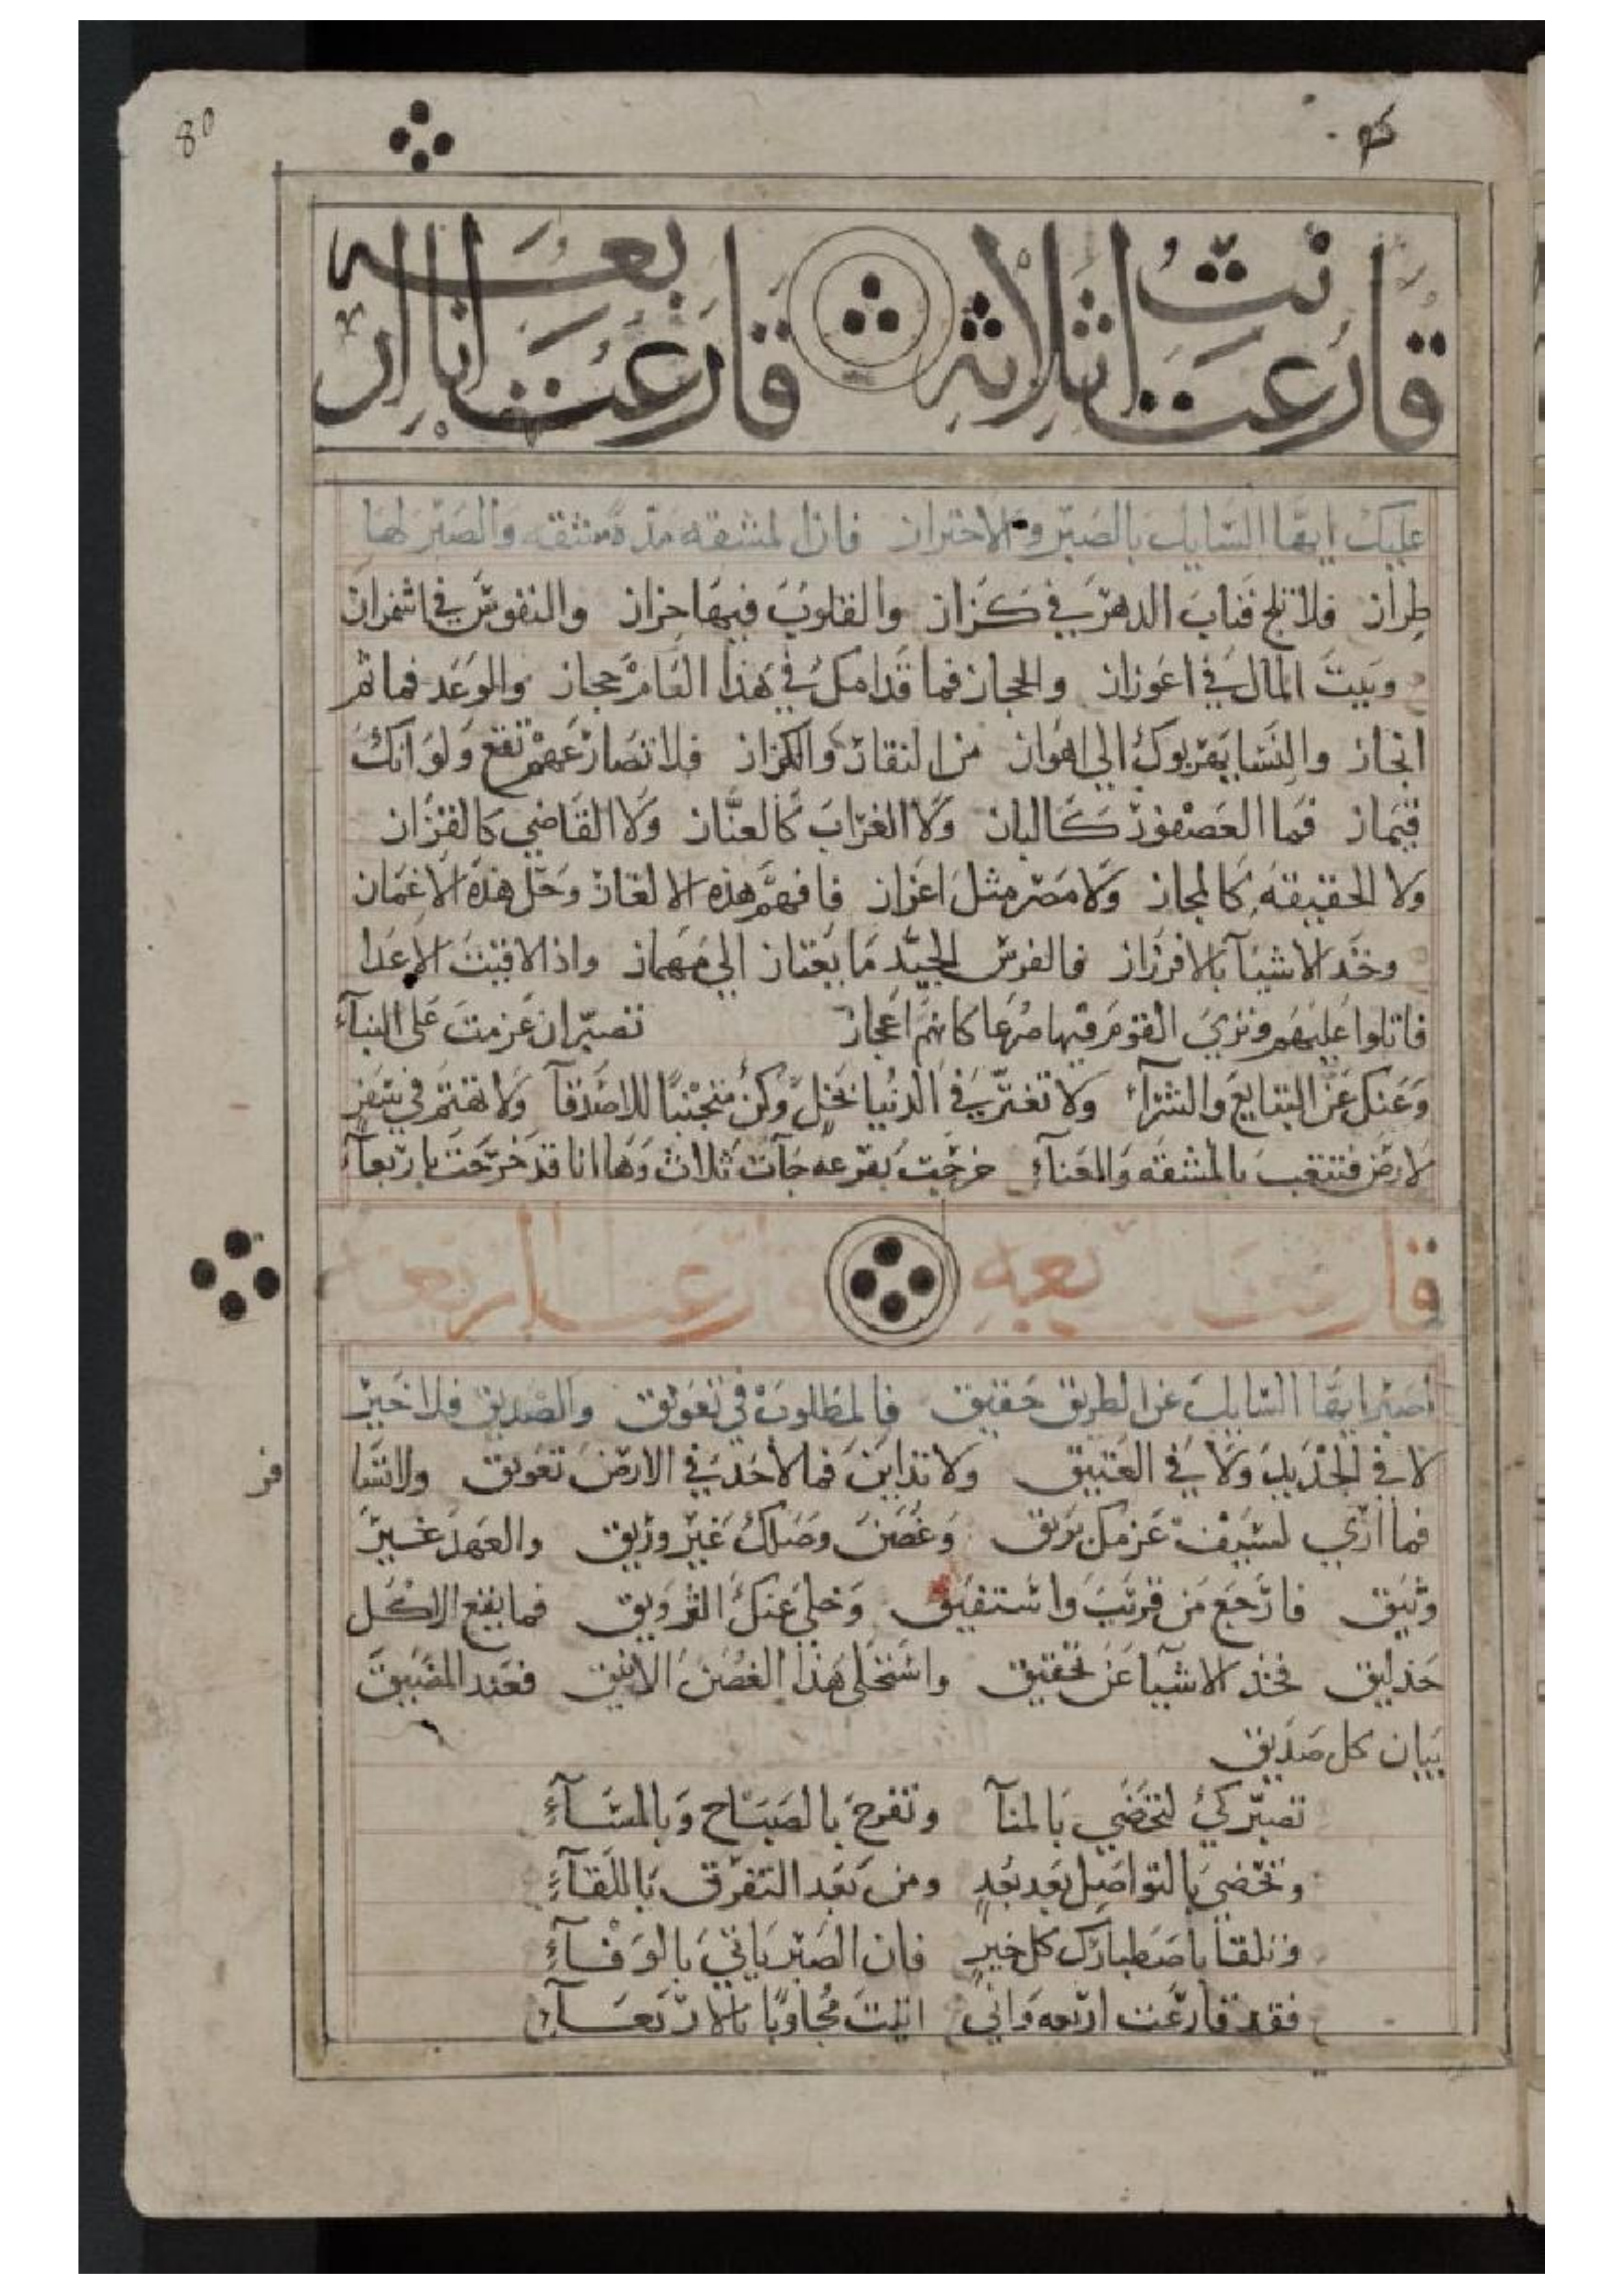 80
قارعت انت ثلاثه قارعت انا اربعه
عليك ايها السايل بالصبر والاحتراز فان لمشقه مده مشقه والصبر لها
طراز فلا تلج فناب الدهر في كزاز والقلوب فيها حزاز والنفوس في اشمزاز
وبيت المال في اعوزاز والحجاز فما قدامك في هذا العام حجاز والوعد فما ثم
انجاز والنسا يقربوك الي الهواز من النقاز والكزاز فلا تصارعهم تقع ولو انك
قيماز فما العصفور كالباز ولا الغراب كالعناز ولا القاضي كالقزاز
ولا الحقيقه كالمجاز ولا مصر مثل اعزاز فافهم هذه الالغاز وحل هذه الاغماز
وخذ الاشيآ بالافرزاز فالفرس الجيد ما يعتاز الي مهماز واذا لاقيت الاعدا
فاتلوا عليهم وتري القوم فيها صرعا كانهم اعجاز تصبر ان عزمت على البنآء
وعنك عن التبايع والشرآء ولا تغتر في الدنيا بخل وكن متجنبا للاصدقآ ولا تهتم في سفر
لارض فتتعب بالمشقه والعنآء خرجت بقرعه جآت ثلاث وها انا قد خرجت باربعآء
قارعت اربعه قارعنا اربعه
اصبر ايها السايل عن الطريق حقيق فالمطلوب في تعويق والصديق فلا خير
لا في الجديد ولا في العتيق ولا تداين فما لاحد في الارض تعويق ولا تشا
فما اري لسيف عزمك بريق وغصن وصلك غير وريق والعهد غير
وثيق فارجع من قريب واستفيق وخلي عنك التزويق فما ينفع الاكل
حذايق فخذ الاشيا عن تحقيق واستحلى هذا الغصن الانيق فعند المضيق
يبان كل صديق
تصبر كي لتحضي بالمنآ وتفرح بالصباح وبالمسآء
وتحضي بالتواصل بعد بعد ومن بعد التفرق باللقآء
وتلقا باصطبارك كل خير فان الصبر ياتي بالوفآء
فقد قارعت اربعه واني اتيت مجاوبا بالاربعآء